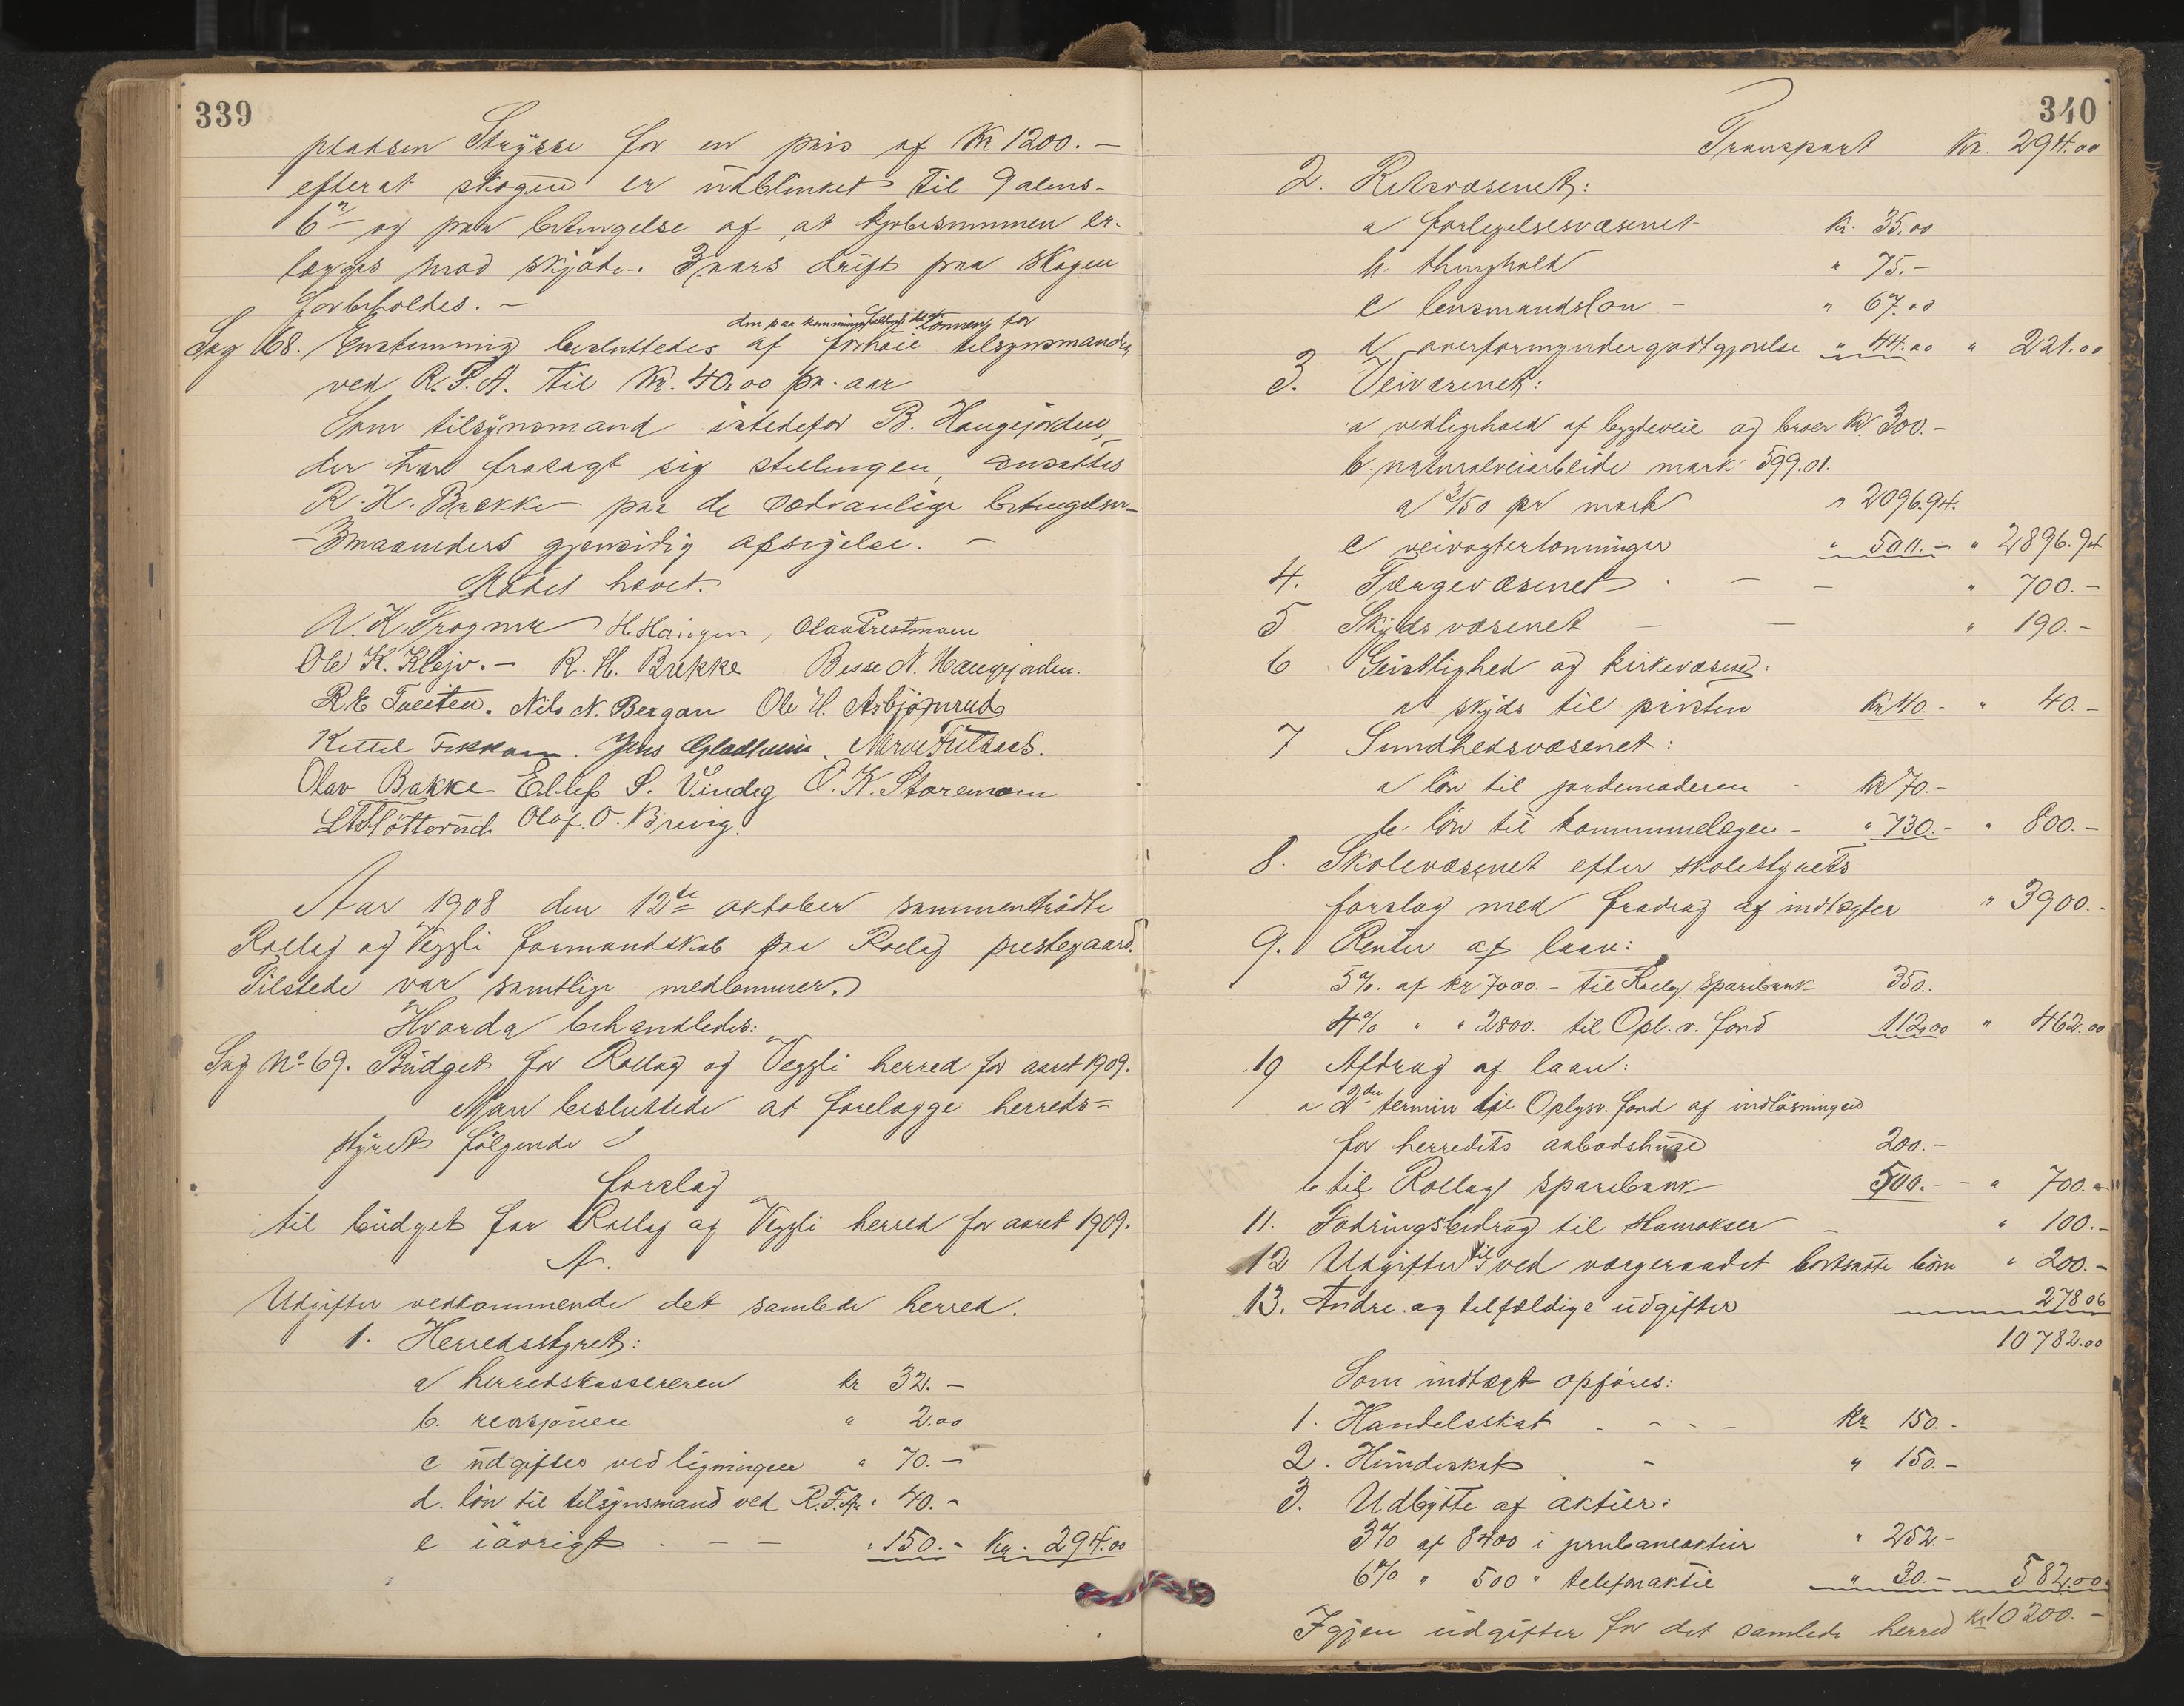 339
pladsen Strysse for en pris af Kr 1200.—
efterat skogen er udblinket til 9 alens-
6" og paa betingelse af, at kjøbesummen er-
lægges mod skjøde. 3 aars drift paa skogen
forbeholdes.—
den paa kommunen faldende del af lønnen for
Sag 68. Enstemmig besluttedes at forhøie tilsynsmanden
ved R.F.A. til Kr. 40.00 pr. aar
Som tilsynsmand istedefor B. Haugejorden,
der har frasagt sig stillingen, ansattes
R. H. Brække paa de sedvanlige betingelser—
—3 maaneders gjensidig opsigelse.—
Mødet hævet.
H. Haugen, Olav Prestmoen
Ole K. Kløjv.— R. H. Brekke Besse N. Haugejorden.
R E Tveiten. Nils N. Bergan Ole H. Asbjørnrud
Kittil Jens Gladheim.
Olav Bakke Ellef S. Vindeg O. K. Storemoen
Olaf. O. Brevig.
Aar 1908 den 12te oktober sammentrådte
Rollag og Veggli formandskab paa Rollag prestegaard.
Tilstede var samtlige medlemmer.
Hvorda behandledes:
Sag No 69. Büdget for Rollag og Veggli herred for aaret 1909.
Man besluttede at forelægge herreds-
styret følgende
forslag
til büdget for Rollag og Veggli herred for aaret 1909.
A.
Udgifter vedkommende det samlede herred.
1. Herredsstyret:
a herredskassereren kr 32.—
b. revisjonen " 2.00
c üdgifter ved ligningen " 70.—
d. løn til tilsynsmand ved R.F.A. " 40.—
e iøvrigt . — — " 150.— Kr. 294.00
340
Transport Kr. 294.00
2. Retsvæsenet:
a forligelsesvæsenet Kr. 35.00
b. thinghold " 75.—
c lensmandsløn — " 67.00
d overformyndergodtgjørelse " 44.00 " 221.00
3. Veivæsenet:
a vedligehold af bygdeveie og broer Kr 300.—
b. naturalveiarbeide mark 599.01.
a 3/50 pr mark " 2096.94.
c veivogterlønninger " 500.— " 2896.94
4. Færgevæsenet . — — " 700.—
5 Skydsvæsenet — — " 190.—
6 Geistlighed og kirkevæsen.
a skyds til presten Kr 40.— " 40.—
7 Sundhedsvæsenet:
a løn til jordemoderen — Kr 70.—
b. løn til kommunelægen — " 730.— " 800.—
8. Skolevæsenet efter skolestyrets
forslag med fradrag af indtægter " 3900.—
9. Renter af laan:
5%. af kr 7000.— til Rollag sparebank 350..
4% " " 2800. til Opl. v. fond 112.00 " 462.00
10 Afdrag af laan:
a 2den termin til Oplysn. fond af indløsningen
for herredets aabodshuse 200.—
b til Rollag sparebank 500.— — " 700.—
11. Fodringsbidrag til stamokser — " 100.—
12 Udgifter til ved værgeraadet bortsatte børn " 200.—
13. Andre og tilfældige udgifter 278.06
10782.00
Som indtægt opføres:
1. Handelsskat . — — — Kr 150.—
2. Hündeskat — " 150.—
3. Udbytte af aktier:
3% af 8400 i jernbaneaktier " 252.—
6% " 500 " telefonaktie " 30.— 582.00
Igjen üdgifter for det samlede herred Kr 10200.—